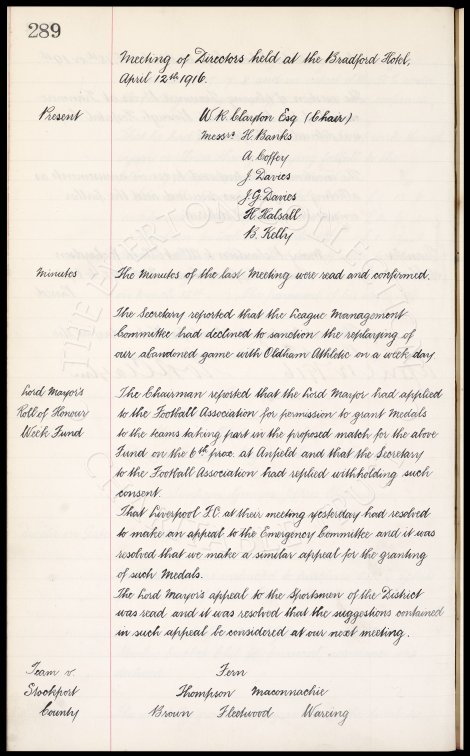 289
Meeting of Directors held at the Bradford Hotel,
April 12th 1916.
Present W.R. Clayton Esq (Chair)
Messrs H. Banks
A. Coffey
J. Davies
J.G. Davies
H. Halsall
B. Kelly
Minutes The Minutes of the last Meeting were read and confirmed.
The Secretary reported that the League Management
Committee had declined to sanction the replaying of
our abandoned game with Oldham Athletic on a week day
Lord Mayor's The Chairman reported that the Lord Mayor had applied
Roll of Honour to the Football Association for permission to grant Medals
Week Fund to the teams taking part in the proposed match for the above
Fund on the 6th prox. at Anfield and that the Secretary
to the Football Association had replied withholding such
consent.
That Liverpool F.C. at their meeting yesterday had resolved
to make an appeal to the Emergency Committee and it was
resolved that we make a similar appeal for the granting
of such Medals.
The Lord Mayor's appeal to the Sportsmen of the District
was read and it was resolved that the suggestions contained
in such appeal be considered at our next meeting.
Team v. Fern
Stockport Thompson Maconnachie
County Brown Fleetwood Wareing